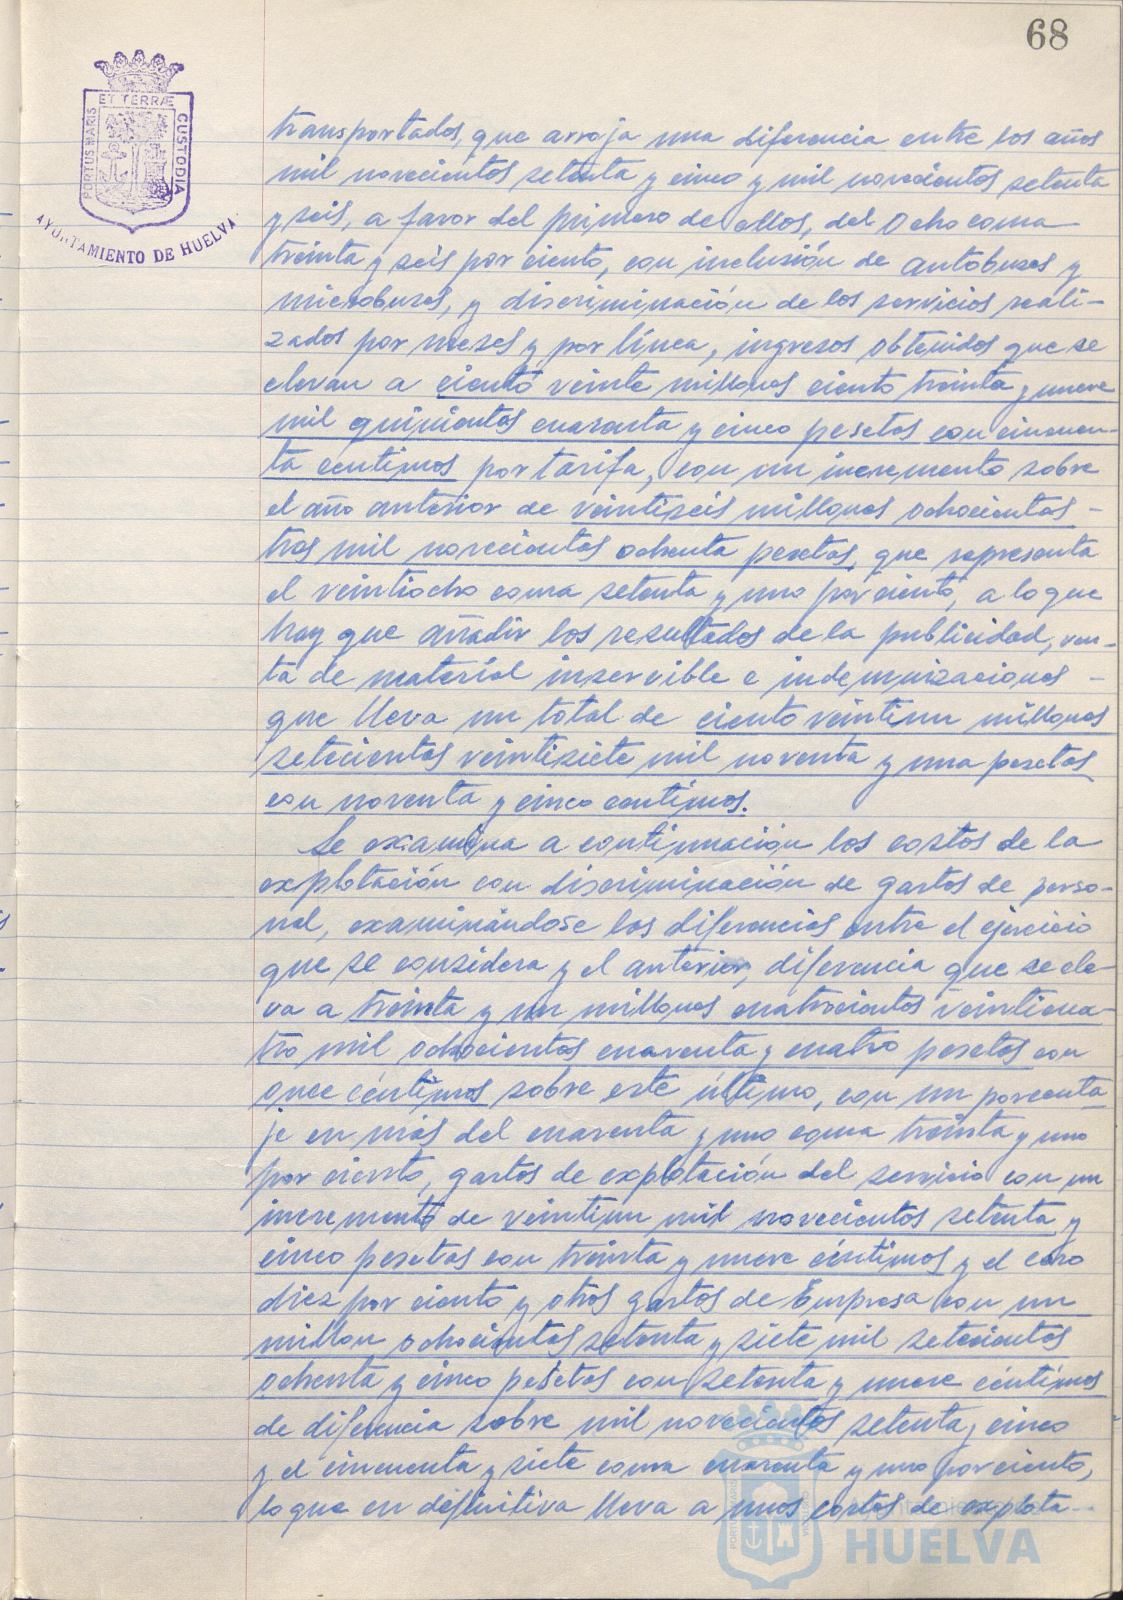 68
PORTUS MARIS
ET TERRÆ
CUSTODIA
AYUNTAMIENTO DE HUELVA
transportados, que arroja una diferencia entre los años
mil novecientos setenta y cinco y mil novecientos setenta
y seis, a favor del primero de ellos, del Ocho coma
treinta y seis por ciento, con inclusión de autobuses y
microbuses, y discriminación de los servicios reali-
zados por meses y por línea, ingresos obtenidos que se
elevan a ciento veinte millones ciento treinta y nueve
mil quinientas cuarenta y cinco pesetas con cincuen-
ta centimos por tarifa, con un incremento sobre
el año anterior de veintiseis millones ochocientas -
tres mil novecientas ochenta pesetas, que representa
el veintiocho coma setenta y uno por ciento, a lo que
hay que añadir los resultados de la publicidad, ven-
ta de material inservible e indemnizaciones -
que lleva un total de ciento veintiun millones
setecientas veintisiete mil noventa y una pesetas
con noventa y cinco centimos.
Se examina a continuación los costos de la
explotación con discriminación de gastos de perso-
nal, examinándose las diferencias entre el ejercicio
que se considera y el anterior, diferencia que se ele-
va a treinta y un millones cuatrocientas veinticua-
tro mil ochocientas cuarenta y cuatro pesetas con
once céntimos sobre este último, con un porcenta
je en más del cuarenta y uno coma treinta y uno
por ciento, gastos de explotación del servicio con un
incremento de veintiun mil novecientas setenta y
cinco pesetas con treinta y nueve céntimos y el cero
diez por ciento y otros gastos de Empresa con un
millon ochocientas setenta y siete mil setecientas
ochenta y cinco pesetas con setenta y nueve céntimos
de diferencia sobre mil novecientos setenta y cinco
y el cincuenta y siete coma cuarenta y uno por ciento,
lo que en definitiva lleva a unos costos de explota-
HUELVA